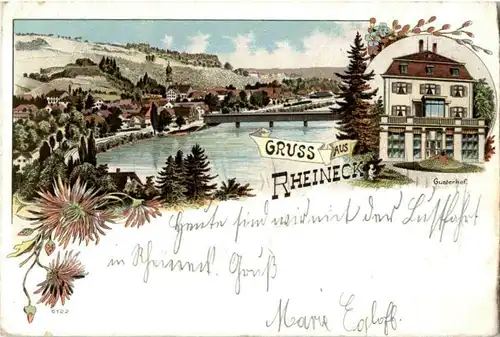 GRUSS AUS
RHEINECK.
Gusterhof.
Heute sind wir mit der Luftfahrt
in Rheineck. Gruß
Marie Egloff.
6122